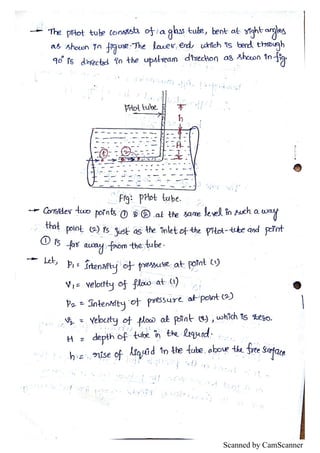 → The pitot tube consists of a glass tube, bent at right angles
as shown in figure. The lower end, which is bend through
90° is directed in the upstream direction as shown in fig.
Pitot tube.
h
H
① ②
Fig: pitot tube.
→ Consider two points ① & ② at the same level in such a way
that point (2) is just as the inlet of the pitot-tube and point
① is far away from the tube.
→ Let, P₁ = Intensity of pressure at point (1)
V₁ = velocity of flow at (1)
P₂ = Intensity of pressure at point (2)
V₂ = velocity of flow at point (2), which is zero.
H = depth of tube in the liquid.
h = rise of liquid in the tube above the free surface
Scanned by CamScanner